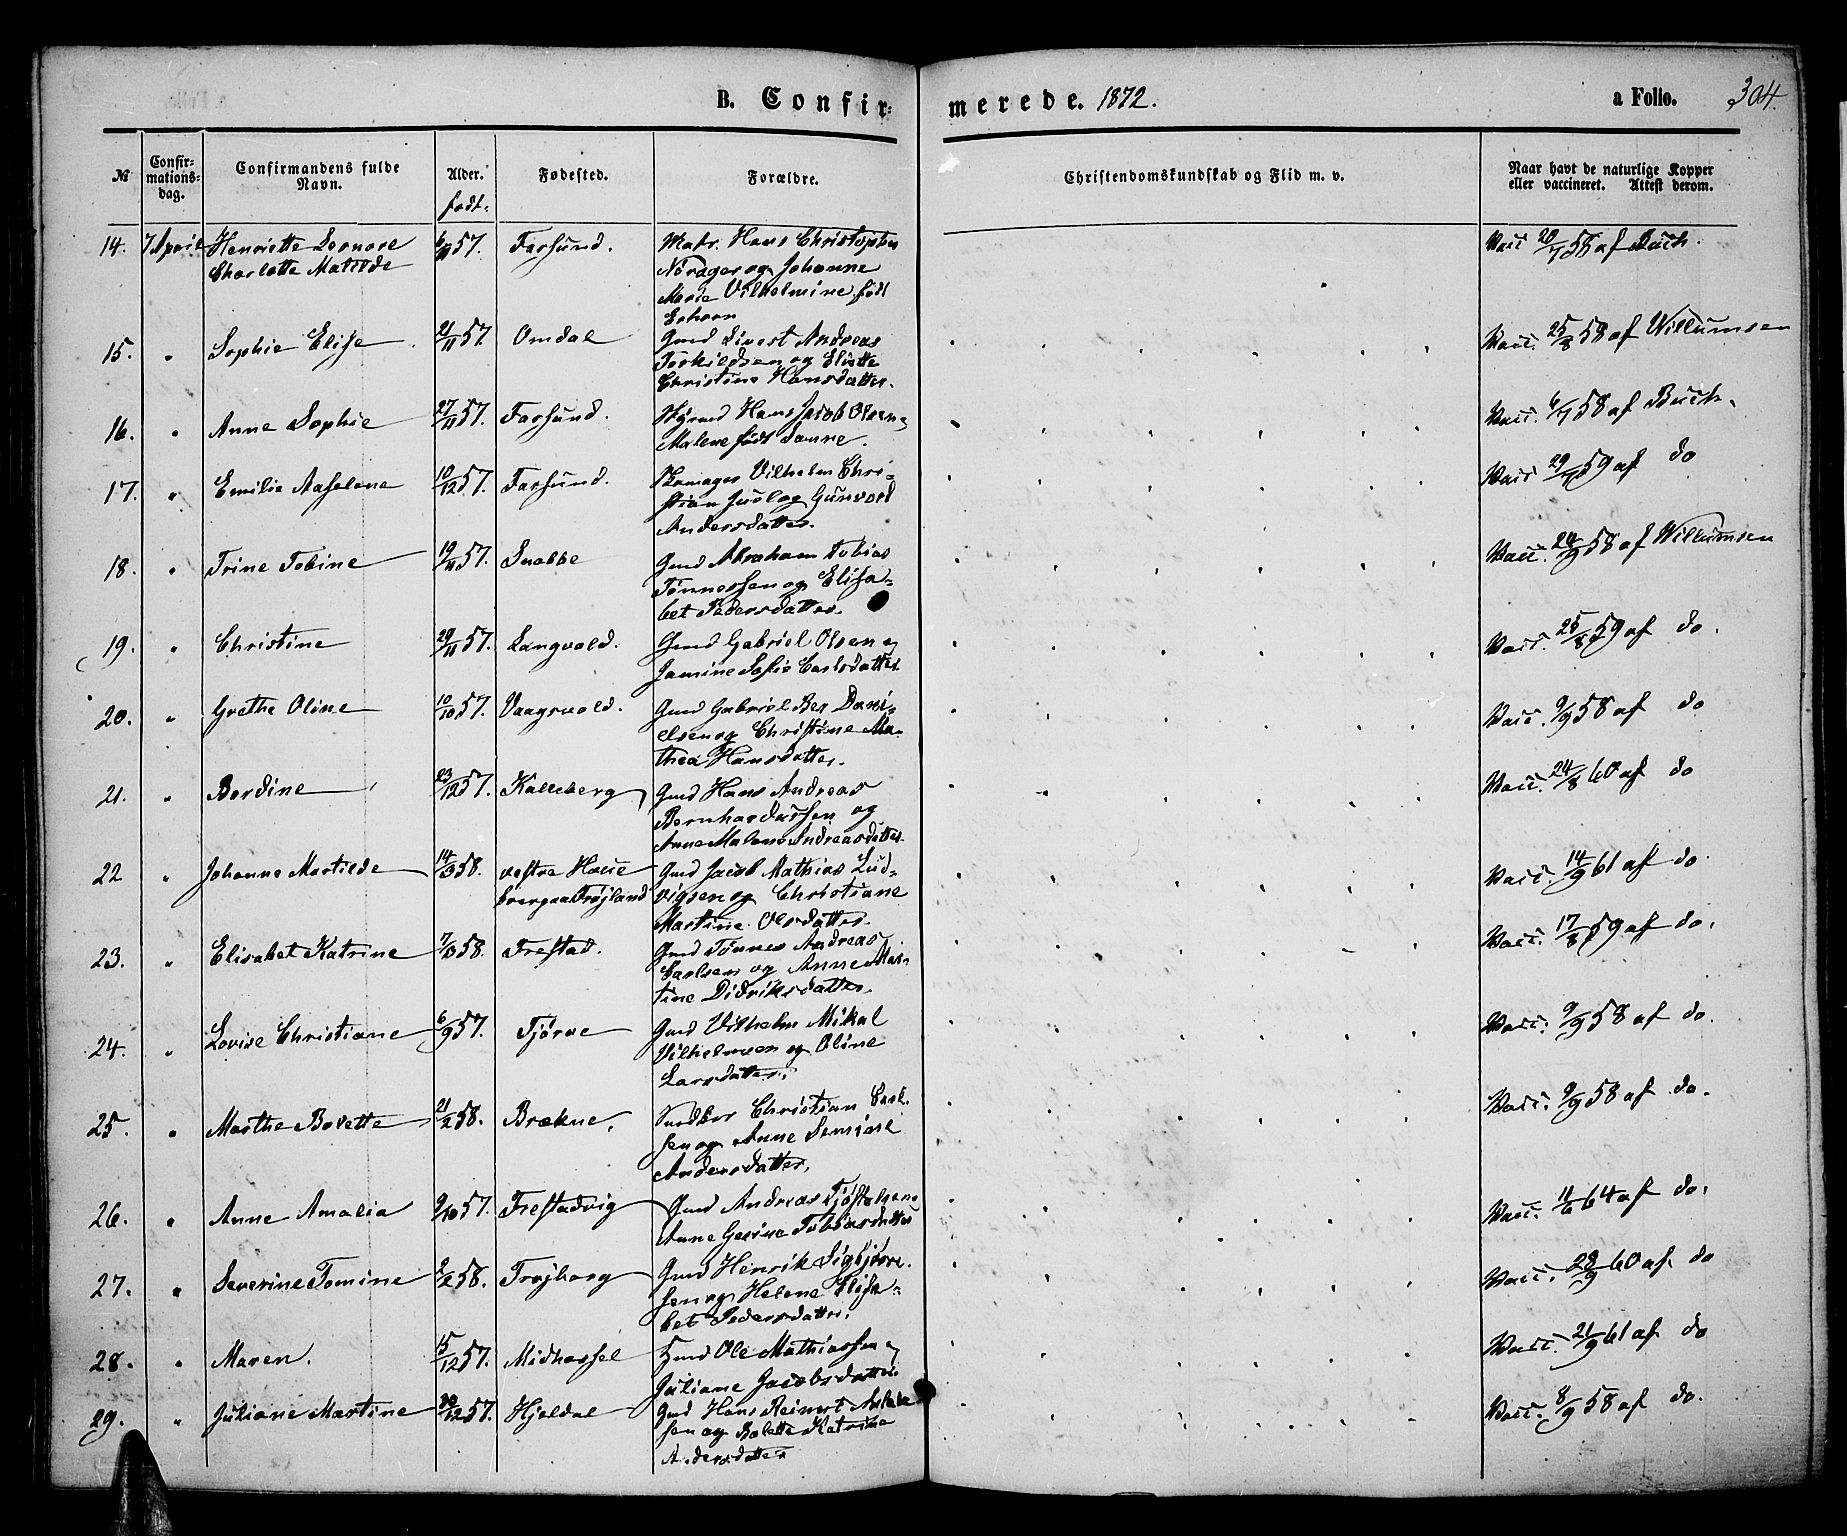 B. Confirmerede. 1872. a Folio. 304.
№ Confirmationsdag. Confirmandens fulde Navn. Alder. født. Fødested. Forældre. Christendomskundskab og Flid m. v. Naar havt de naturlige Kopper eller vaccineret. Attest derom.
14. 7 April Henriette Leonore 57. Farsund. Matr. Hans Christophen Vacc 58 af Buch.
Charlotte Matilde Nørager og Johanne
Marie Vilhelmine født
15. " Sophie Elise 21/11 57 Omdal Gmd Sivert Andreas Vacc. 25/8 58 af Willumsen
Torkildsen og Elisette
Christine Hansdatter.
16. " Anne Sophie 27/11 57. Farsund. Hans Jacob Olsen og Vacc. 6/7 58 af Buch.
Malene født Sonne.
17. " Emilie Aaselene 10/12 57. Farsund. Skomager Vilhelm Chri- Vacc 29/7 59 af do
stian Juul og Gunvord
Andersdatter.
18. " Trine Tobine 19/11 57. Snabbe Gmd Abraham Tobias Vacc. 24/9 58 af Willumsen
Tønnessen og Elisa-
bet Pedersdatter.
19. " Christine 29/11 57. Langvold. Gmd Gabriel Olsen og Vacc. 25/8 59 af do.
Jamine Sofie Carlsdatter
20. " Grethe Oline 10/10 57. Vaagsvold. Gmd Gabriel Ber Dani- Vacc. 9/9 58 af do
elsen og Christine Ma-
thea Hansdatter.
21. " Berdine 23/12 57. Kalleberg Gmd Hans Andreas Vacc. 24/8 60 af do
Bernhardussen og
Anne Malene Andreasdatter
22 " Johanne Martilde 14/3 58. vestre Haue Gmd Jacob Mathias Lud- Vacc. 14/9 61 af do.
Trøjland vigsen og Christiane
Martine Olsdatter
23. " Elisabet Katrine 7/3 58. Frestad. Gmd Tønnes Andreas Vacc. 17/8 59 af do.
Carlsen og Anne Mar-
tine Didriksdatter.
24. " Lovise Christiane 6/9 57. Tjørve Gmd Vilhelm Mikal Vacc. 9/9 58 af do.
Vilhelmsen og Oline
Larsdatter.
25. " Marthe Bolette 21/2 58. Brækne. Christian Carl- Vacc. 9/9 58 af do.
sen og Anne Semine
Andersdatter.
26. " Anne Amalia 9/10 57. Frestadvig Gmd Andreas Tjøstolsen og Vacc. 11/6 64 af do.
Anne Gesine Tobiasdatter
27. " Severine Tomine 2/2 58. Trojborg Gmd Henrik Sigbjørn- Vacc. 28/9 60 af do
sen og Helene Elisa-
bet Pedersdatter.
28. " Maren. 15/12 57. Midhassel Gmd Ole Mathiassen og Vacc. 21/9 61 af do
Juliane Jacobsdatter
29. " Juliane Martine 12 57. Hjeldal Gmd Hans Reinert Vacc. 8/9 58 af do.
sen og Bolette Katrine
Andersdatter